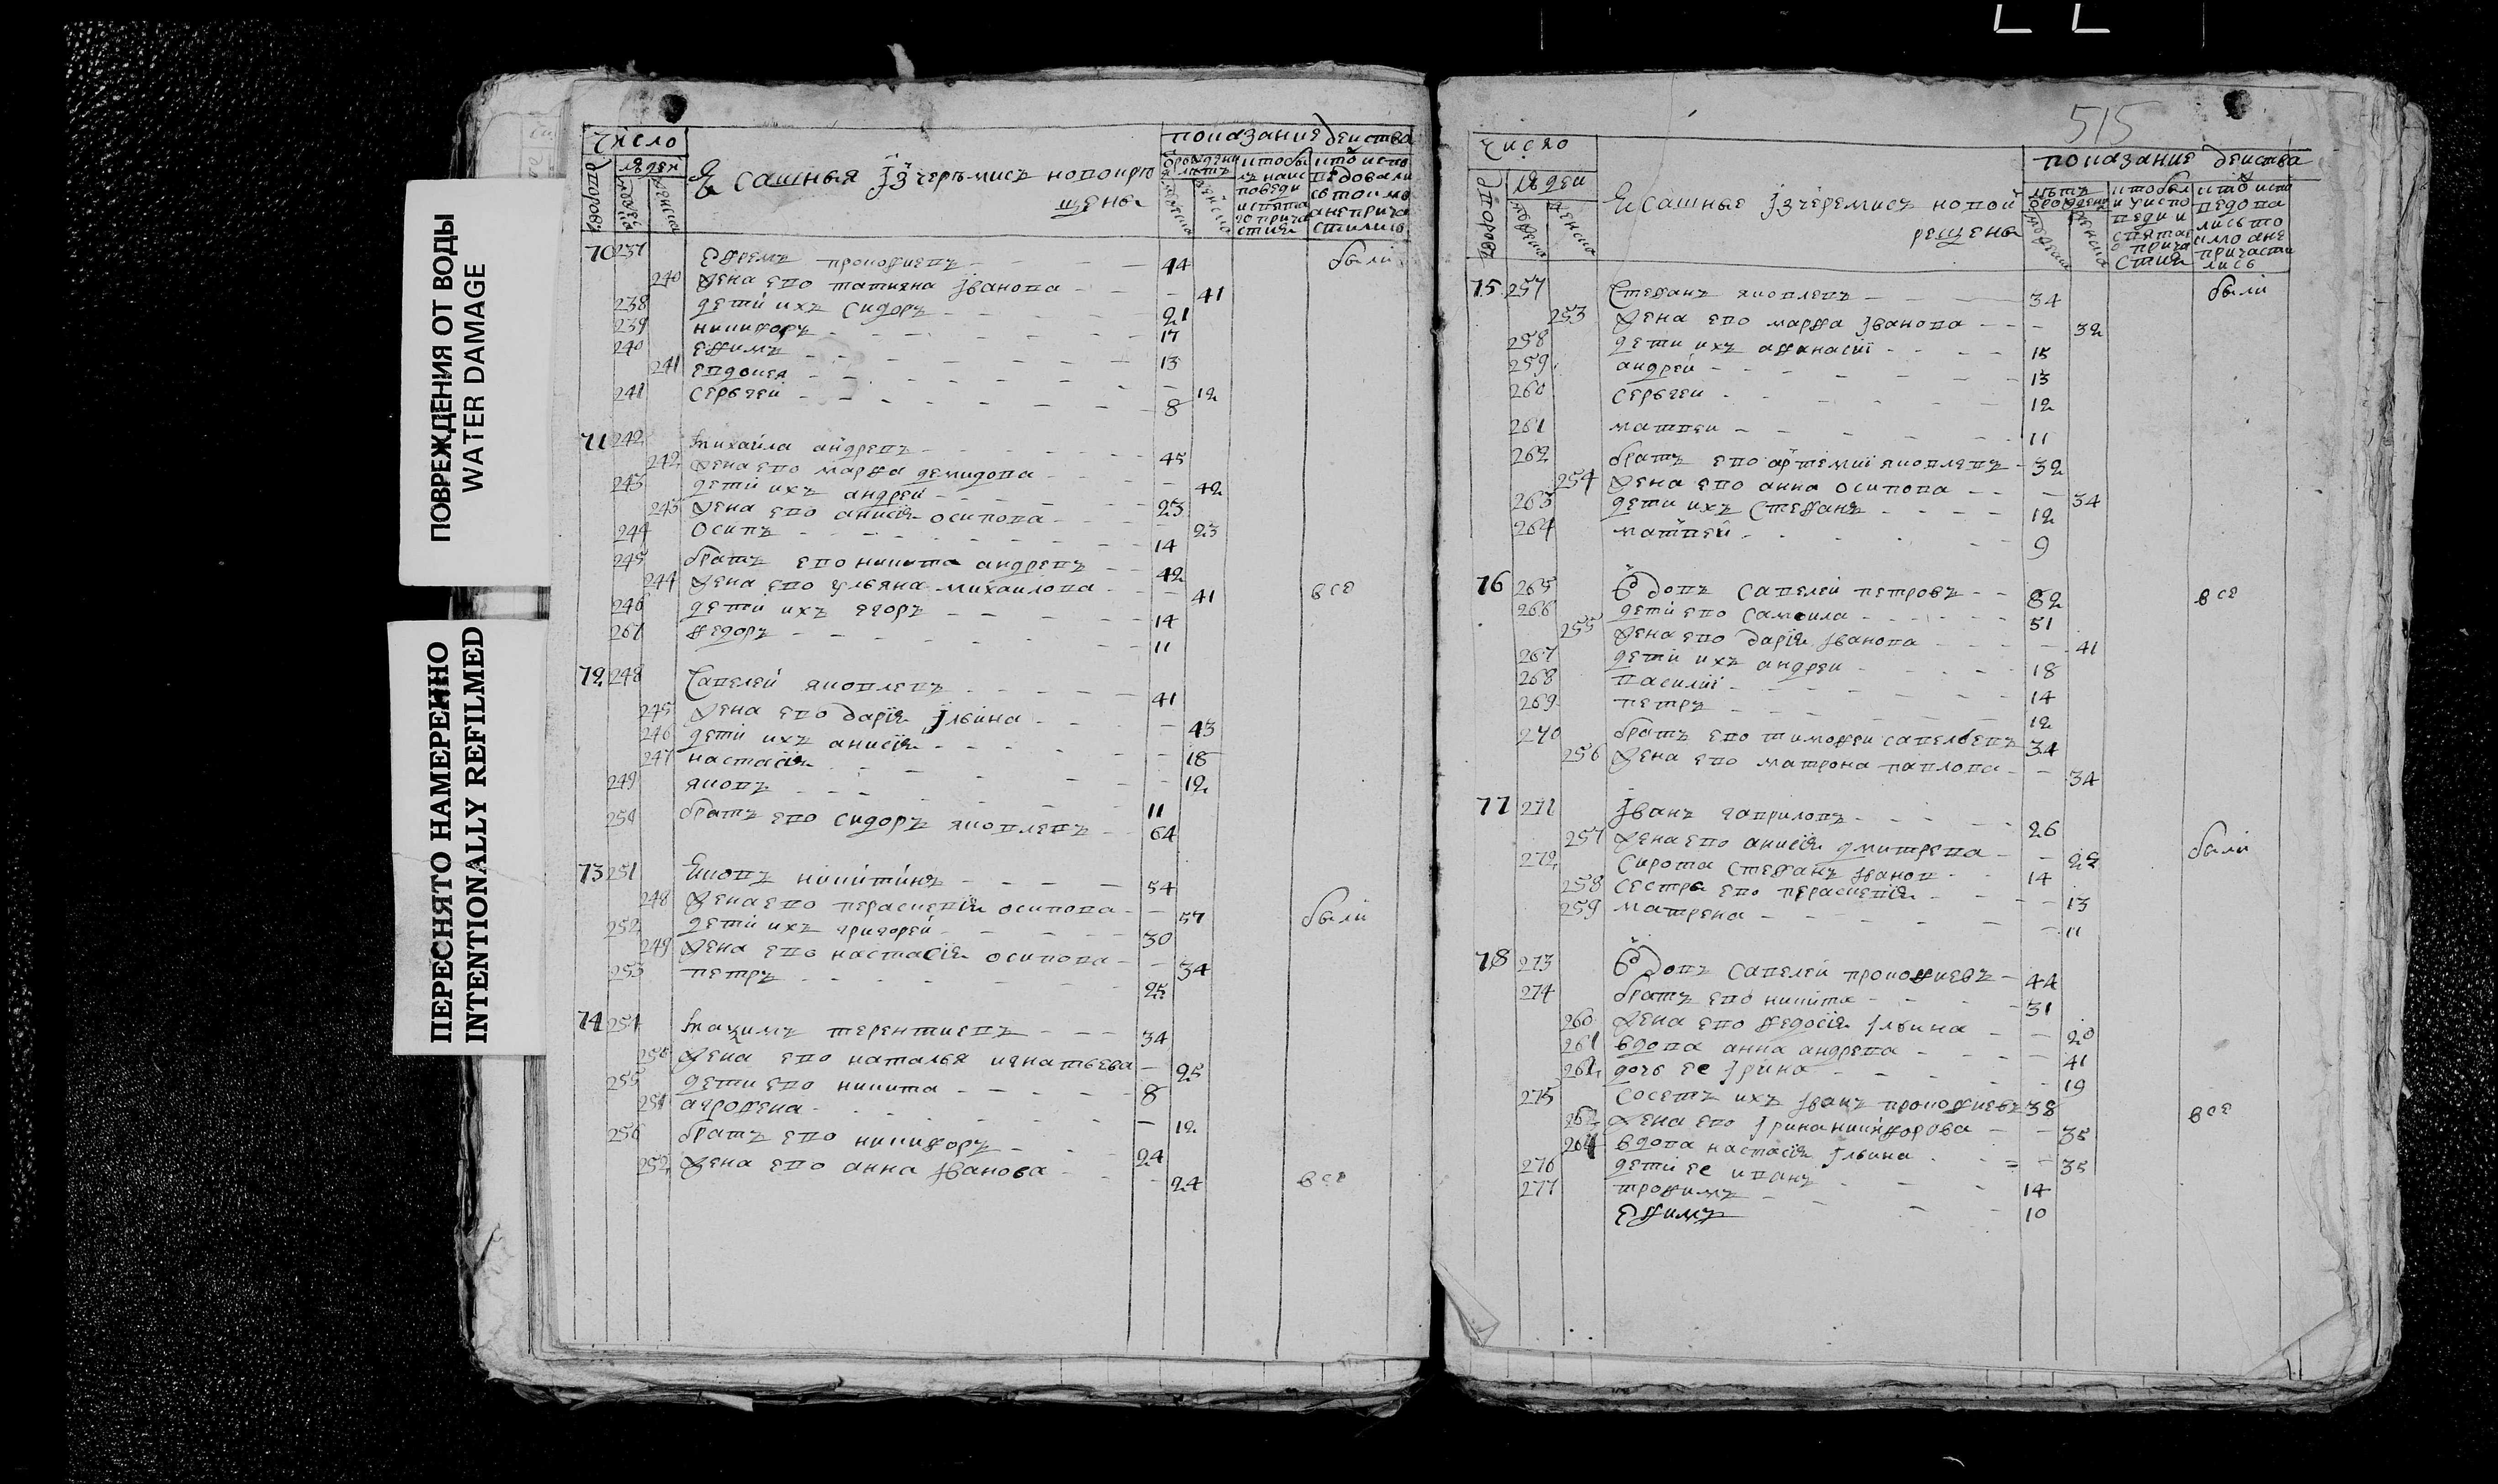 ПОВРЕЖДЕНИЯ ОТ ВОДЫ
WATER DAMAGE
ПЕРЕСНЯТО НАМЕРЕННО
INTENTIONALLY REFILMED
число показание действа
людей
Есашныя Ізчеремисъ новокре
щены
70 237 Ефремъ прокофиевъ 44 были
240 Жена ево татияна Іванова 41
238 дети ихъ Сидоръ 21
239 никифоръ 17
240 ефимъ 13
241 евдокея 12
241 сергеи 8
71 242 михаила андревъ 45
242 Жена ево марфа демидова 42
243 дети ихъ андреи 23
243 Жена ево анисія осипова 23
244 осипъ 14
245 братъ ево никита андревъ 42
244 Жена ево ульяна михаилова 41 все
246 дети ихъ егоръ 14
267 федоръ 11
72 248 Савелеи яковлевъ 41
245 Жена ево дарія Ільина 43
246 дети ихъ анисія 18
247 настасія 12
249 яковъ 11
250 братъ ево сидоръ яковлевъ 64
73 251 Яковъ никитинъ 54
248 Жена ево пераскевія осипова 57 были
252 дети ихъ григореи 30
249 Жена ево настасія осипова 34
253 петръ 25
74 254 максимъ терентиевъ 34
250 Жена ево наталья игнатьева 25
255 дети ево никита 8
251 агрофена 12
256 братъ ево никифоръ 24
252 Жена ево анна Іванова 24 все
515
число показание действа
людеи
Есашные Ізчеремисъ новок
рещены
75 257 Стефанъ яковлевъ 34 были
253 Жена ево марфа Іванова 32
258 дети ихъ афанасиі 15
259 андреи 13
260 сергеи 12
261 матвеи 11
262 братъ ево артемиі яковлевъ 32
254 Жена ево анна осипова 34
263 дети ихъ Стефанъ 12
264 матвеи 9
76 265 Вдовъ Савелеи петровъ 82 все
266 дети ево самоила 51
255 Жена ево дарія Іванова 41
267 дети ихъ андреи 18
268 василиі 14
269 петръ 12
270 братъ ево тимофеи савельевъ 34
256 Жена ево матрона павлова 34
77 271 Іванъ гавриловъ 26
257 Жена ево анисія дмитрева 22 были
272 Сирота Стефанъ Іванов 14
258 сестра ево пераскевія 13
259 матрена 11
78 273 Вдовъ Савелеи прокофиевъ 44
274 братъ ево никита 31
260 Жена ево федосія Ільина 20
261 вдова анна андрева 41
262 дочь ее Ірина 19
275 Сосетъ ихъ Іванъ прокофиевъ 38 все
262 Жена ево Ірина никифорова 35
264 вдова настасія Ільина 35
276 дети ее иванъ 14
277 трофимъ 10
Ефимъ